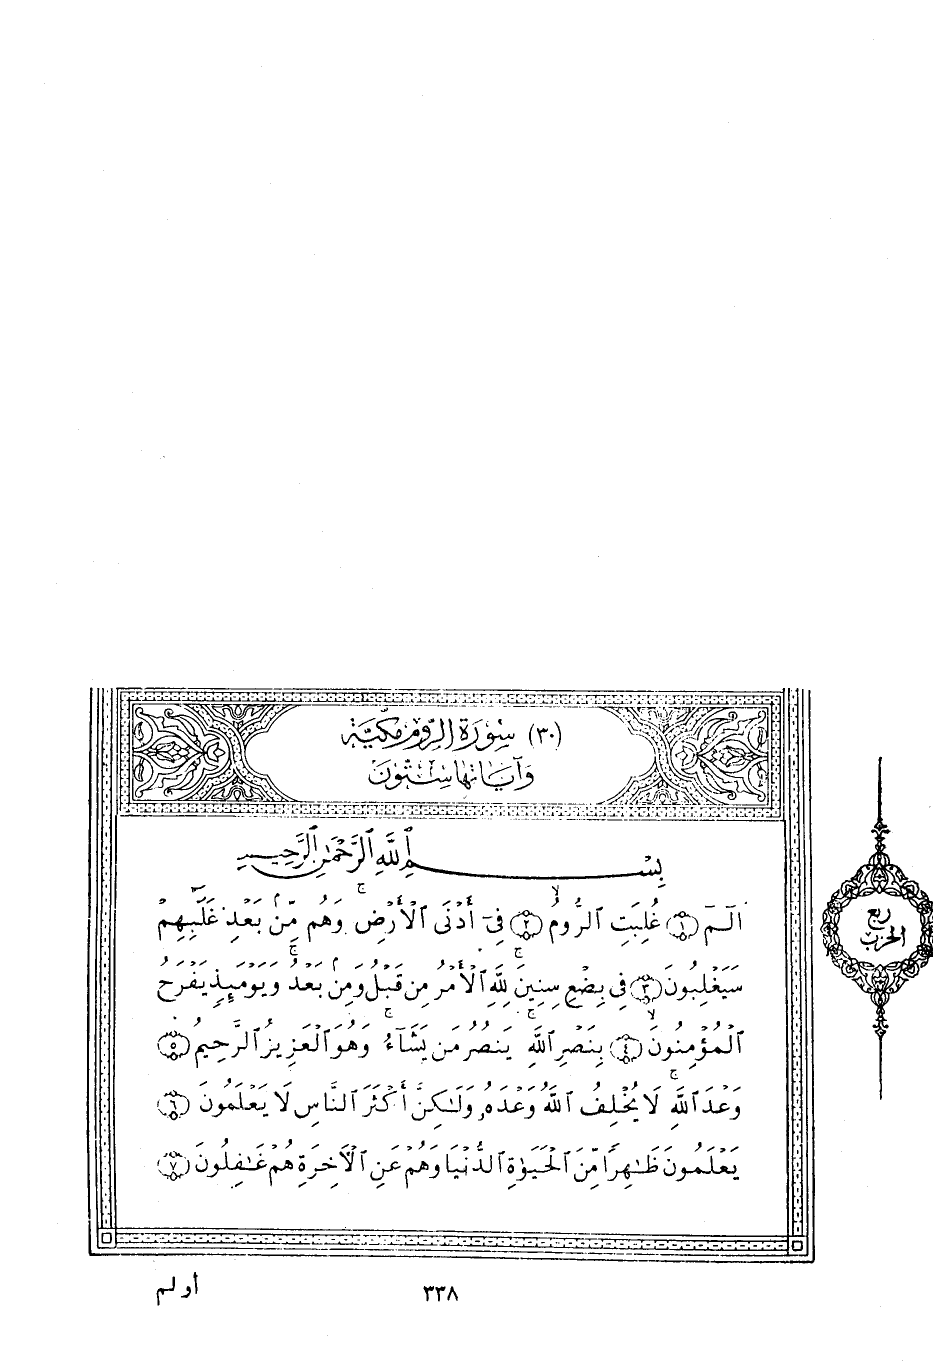 (٣٠) سُورَةُ الرُّومِ مَكِّيَّة
وَآيَاتُهَا سِتُّونَ
بِسْمِ ٱللَّهِ ٱلرَّحْمَٰنِ ٱلرَّحِيمِ
الٓمٓ ١ غُلِبَتِ ٱلرُّومُ ٢ فِىٓ أَدْنَى ٱلْأَرْضِ ۚ وَهُم مِّنۢ بَعْدِ غَلَبِهِمْ
سَيَغْلِبُونَ ٣ فِى بِضْعِ سِنِينَ ۚ لِلَّهِ ٱلْأَمْرُ مِن قَبْلُ وَمِنۢ بَعْدُ ۚ وَيَوْمَئِذٍ يَفْرَحُ
ٱلْمُؤْمِنُونَ ٤ بِنَصْرِ ٱللَّهِ ۚ يَنصُرُ مَن يَشَآءُ ۚ وَهُوَ ٱلْعَزِيزُ ٱلرَّحِيمُ ٥
وَعْدَ ٱللَّهِ ۚ لَا يُخْلِفُ ٱللَّهُ وَعْدَهُۥ وَلَٰكِنَّ أَكْثَرَ ٱلنَّاسِ لَا يَعْلَمُونَ ٦
يَعْلَمُونَ ظَٰهِرًا مِّنَ ٱلْحَيَوٰةِ ٱلدُّنْيَا وَهُمْ عَنِ ٱلْأَخِرَةِ هُمْ غَٰفِلُونَ ٧
ربع
الحزب
٣٣٨
أولم